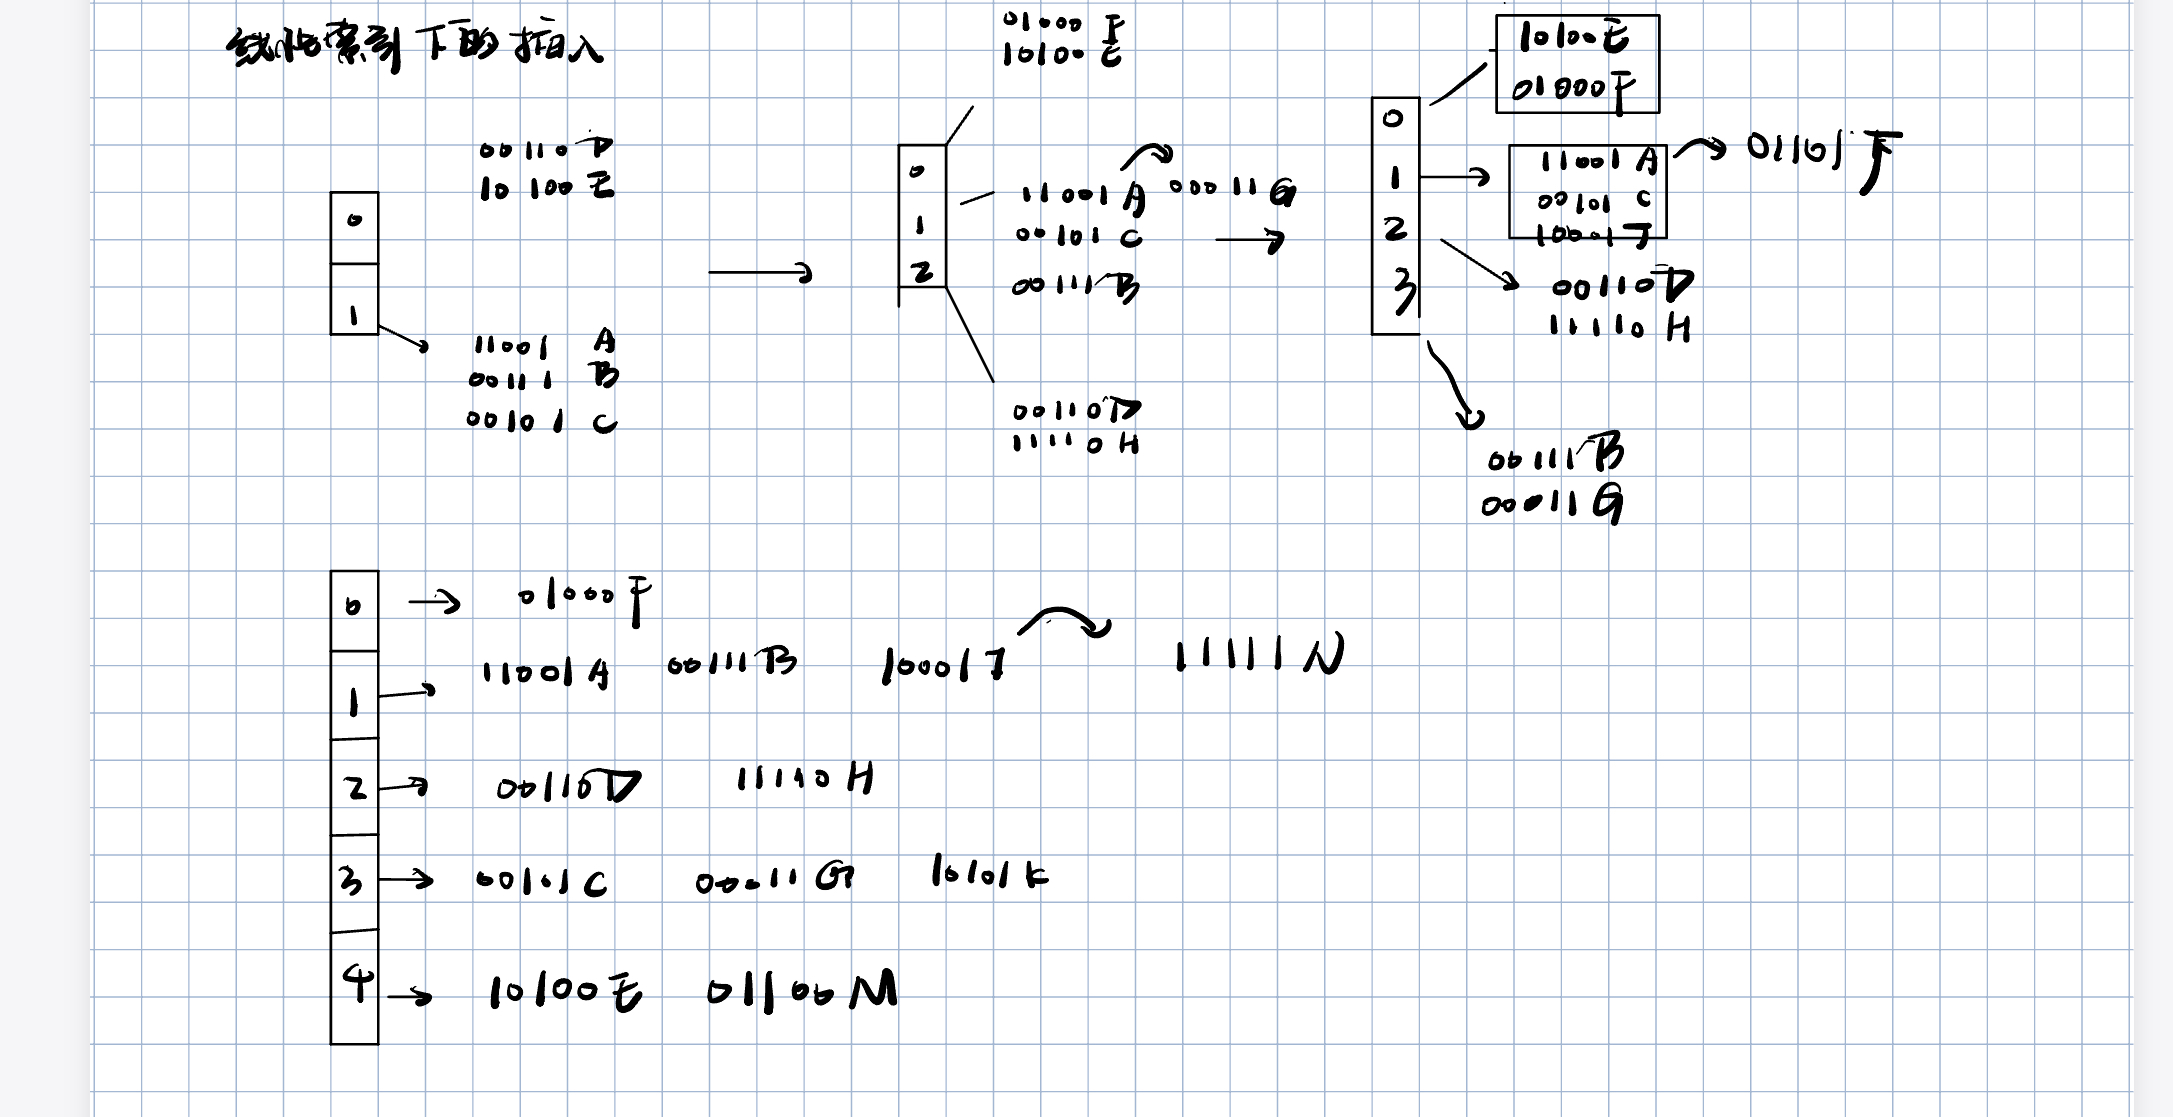 线性索引下的插入
00110 D
10100 E
0
1
11001 A
00111 B
00101 C
01000 F
10100 E
0
1
2
11001 A 00011 G
00101 C
00111 B
00110 D
11110 H
0
1
2
3
10100 E
01000 F
11001 A 01101 F
00101 C
10001 J
00110 D
11110 H
00111 B
00011 G
0 01000 F
1 11001 A 00111 B 10001 J 11111 N
2 00110 D 11110 H
3 00101 C 00011 G 10101 K
4 10100 E 01100 M